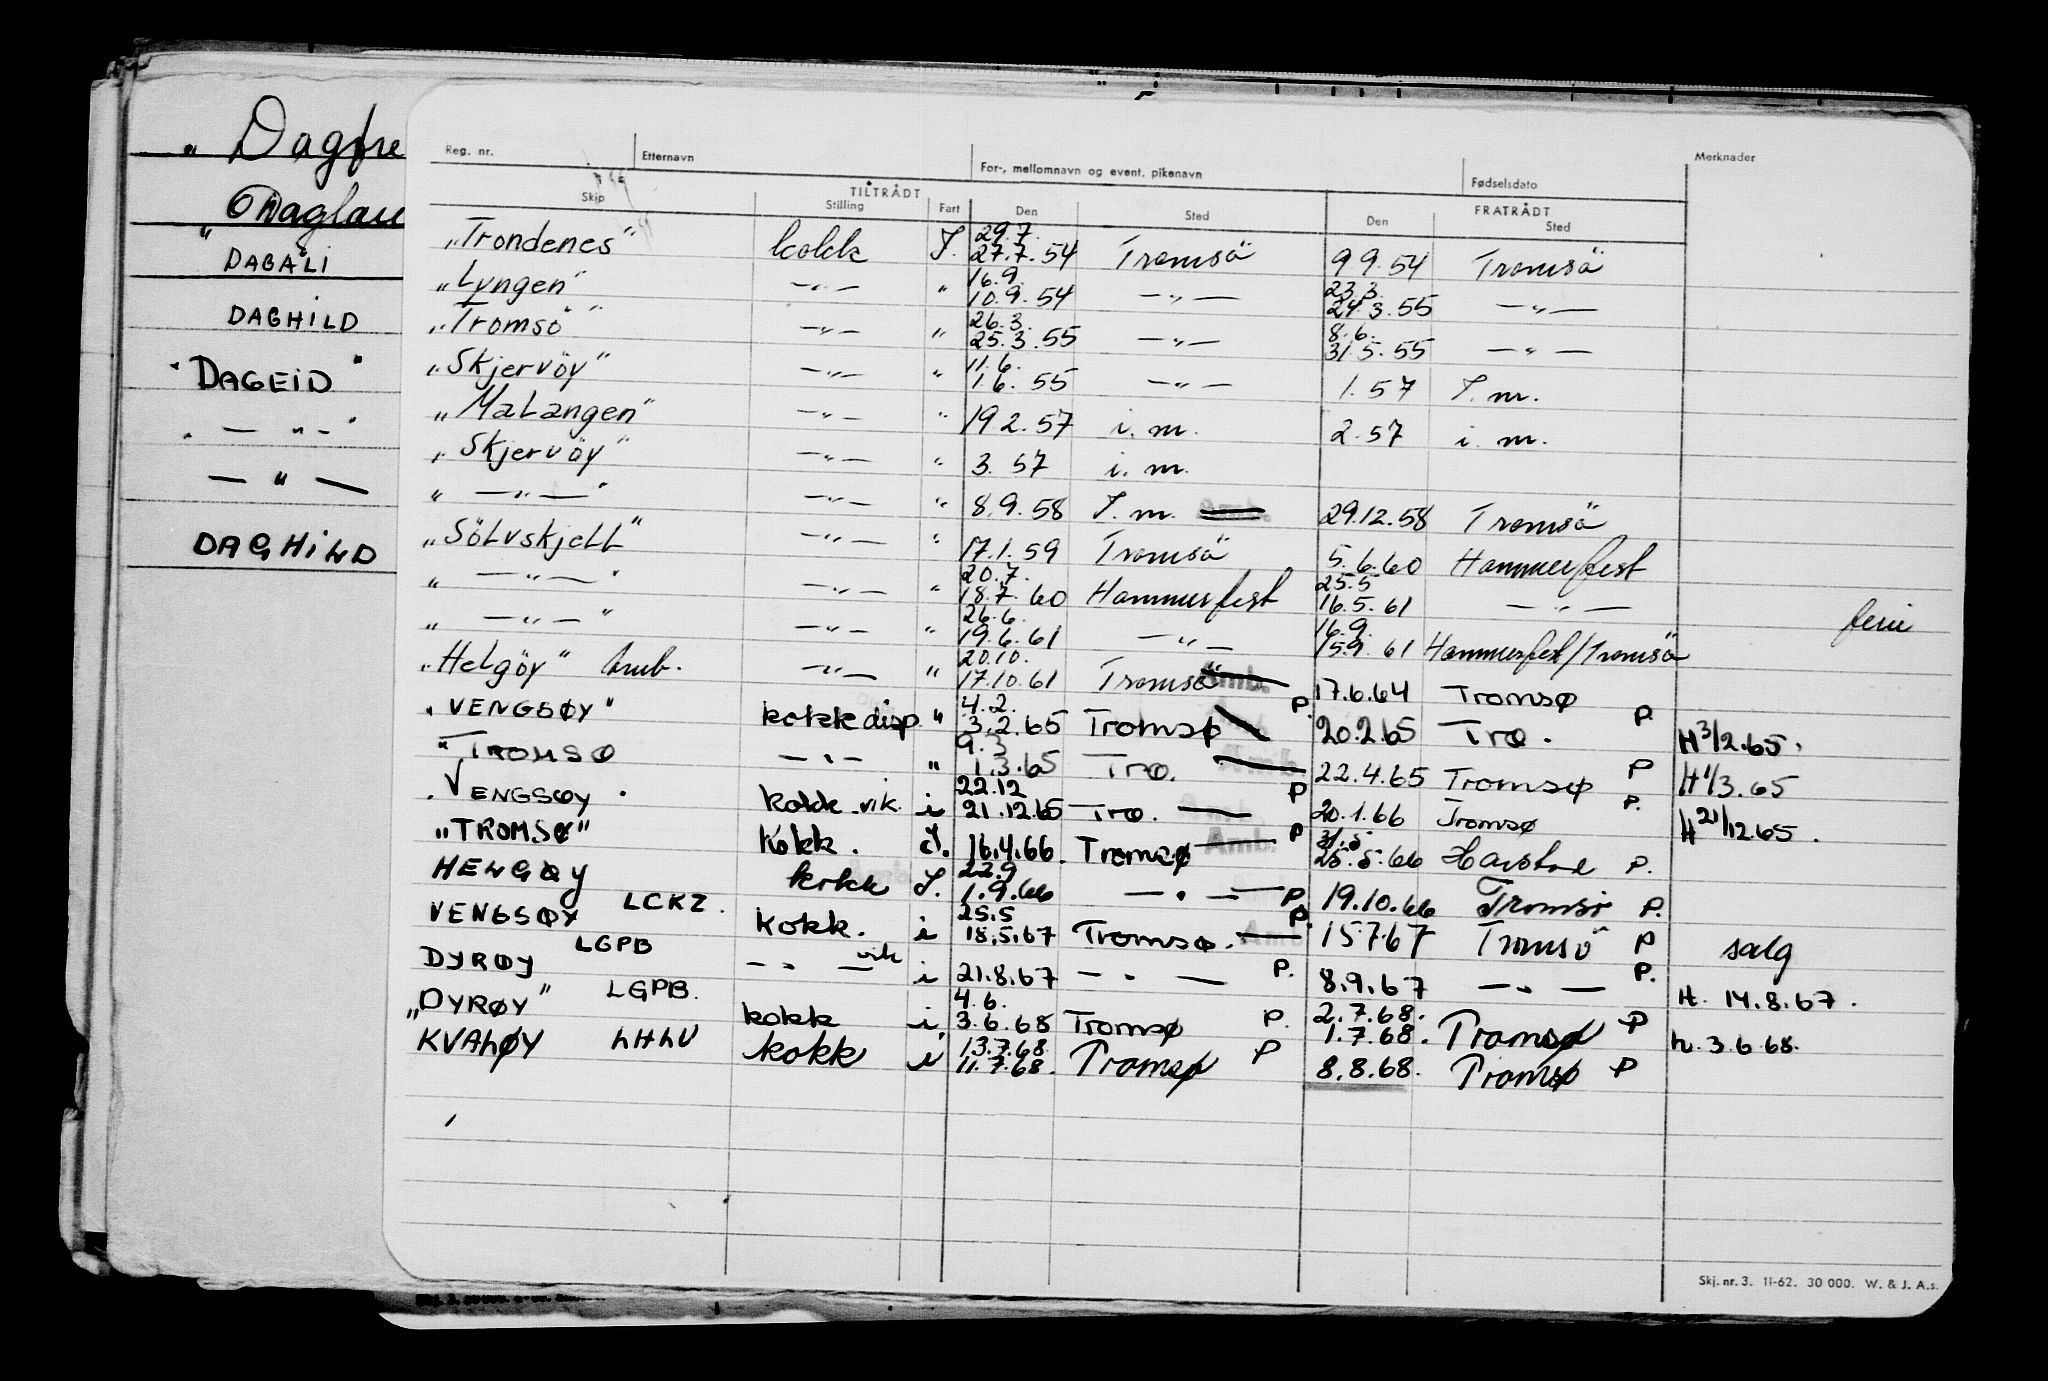 „ Dagfre
Daglau
DAGALI
DAGHILD
" DAGEID "
" — " — "
— " —
DAGHILD
Reg. nr. Etternavn For-, mellomnavn og event. pikenavn Fødselsdato Merknader
TILTRÅDT FRATRÅDT
Skip Stilling Fart Den Sted Den Sted
29.7.
„Trondenes" kokk I. 27.7.54 Tromsö 9 9.54 Tromsö
16.9. 23.3.
„Lyngen" —„— " 10.9.54 —„— 24.3.55 —„—
26.3. 8.6.
„Tromsö" —„— " 25.3.55 —„— 31.5.55 —„—
11.6.
„Skjervöy" —„— " 1.6.55 —„— 1.57 I.m.
„Malangen" —„— " 19 2.57 i.m. 2.57 i.m.
„Skjervöy" —„— " 3.57 i.m.
„ —„— " —„— " 8.9.58 I.m. 29.12.58 Tromsö
„Sölvskjell" —„— " 17.1.59 Tromsö 5.6.60 Hammerfest
20.7. 25.5
„ —„— " —„— " 18.7.60 Hammerfest 16.5.61 —„— ferie
26.6. 16.9.
„ —„— " —„— " 19.6.61 —„— 15.9.61 Hammerfest/Tromsö
20.10.
„Helgöy" Amb. —„— " 17.10.61 Tromsö Amb. 17.6.64 Tromsø
4.2.
„VENGSØY" kokk disp. " 3.2.65 Tromsø P. 20.2.65 Tro. P. H 3/2.65.
9.3
"TROMSØ — „ — " 1.3.65 Tro. Amb 22.4.65 Tromsø P H 1/3.65
22.12
. VENGSØY . kokk.vik. i 21.12.65 Tro. — P 20.1.66 Tromsø P. H 21/12.65.
31.5
„TROMSØ" Kokk. I. 16.4.66. Tromsø Amb. P 25.5.66 Harstad P.
22.9
HELGØY kokk I. 1.9.66 — " — P. 19.10.66 Tromsö P.
25.5
VENGSØY LCKZ. Kokk. i 18.5.67 Tromsø. Amb P. 15 7.67 Tromsö P salg
DYRØY LGPB — " — vik i 21.8.67 — " — P. 8.9.67 — " — P. H. 14.8.67.
4.6. 2.7.68.
„DYRØY" LGPB. kokk i 3.6.68 Tromsø P. 1.7.68. Tromsø P h. 3.6 68.
13.7.68
KVALØY LHLU kokk i 11.7.68. Tromsø P 8.8.68. Tromsø P
Skj. nr. 3. 11-62. 30 000. W. & J. A.s.